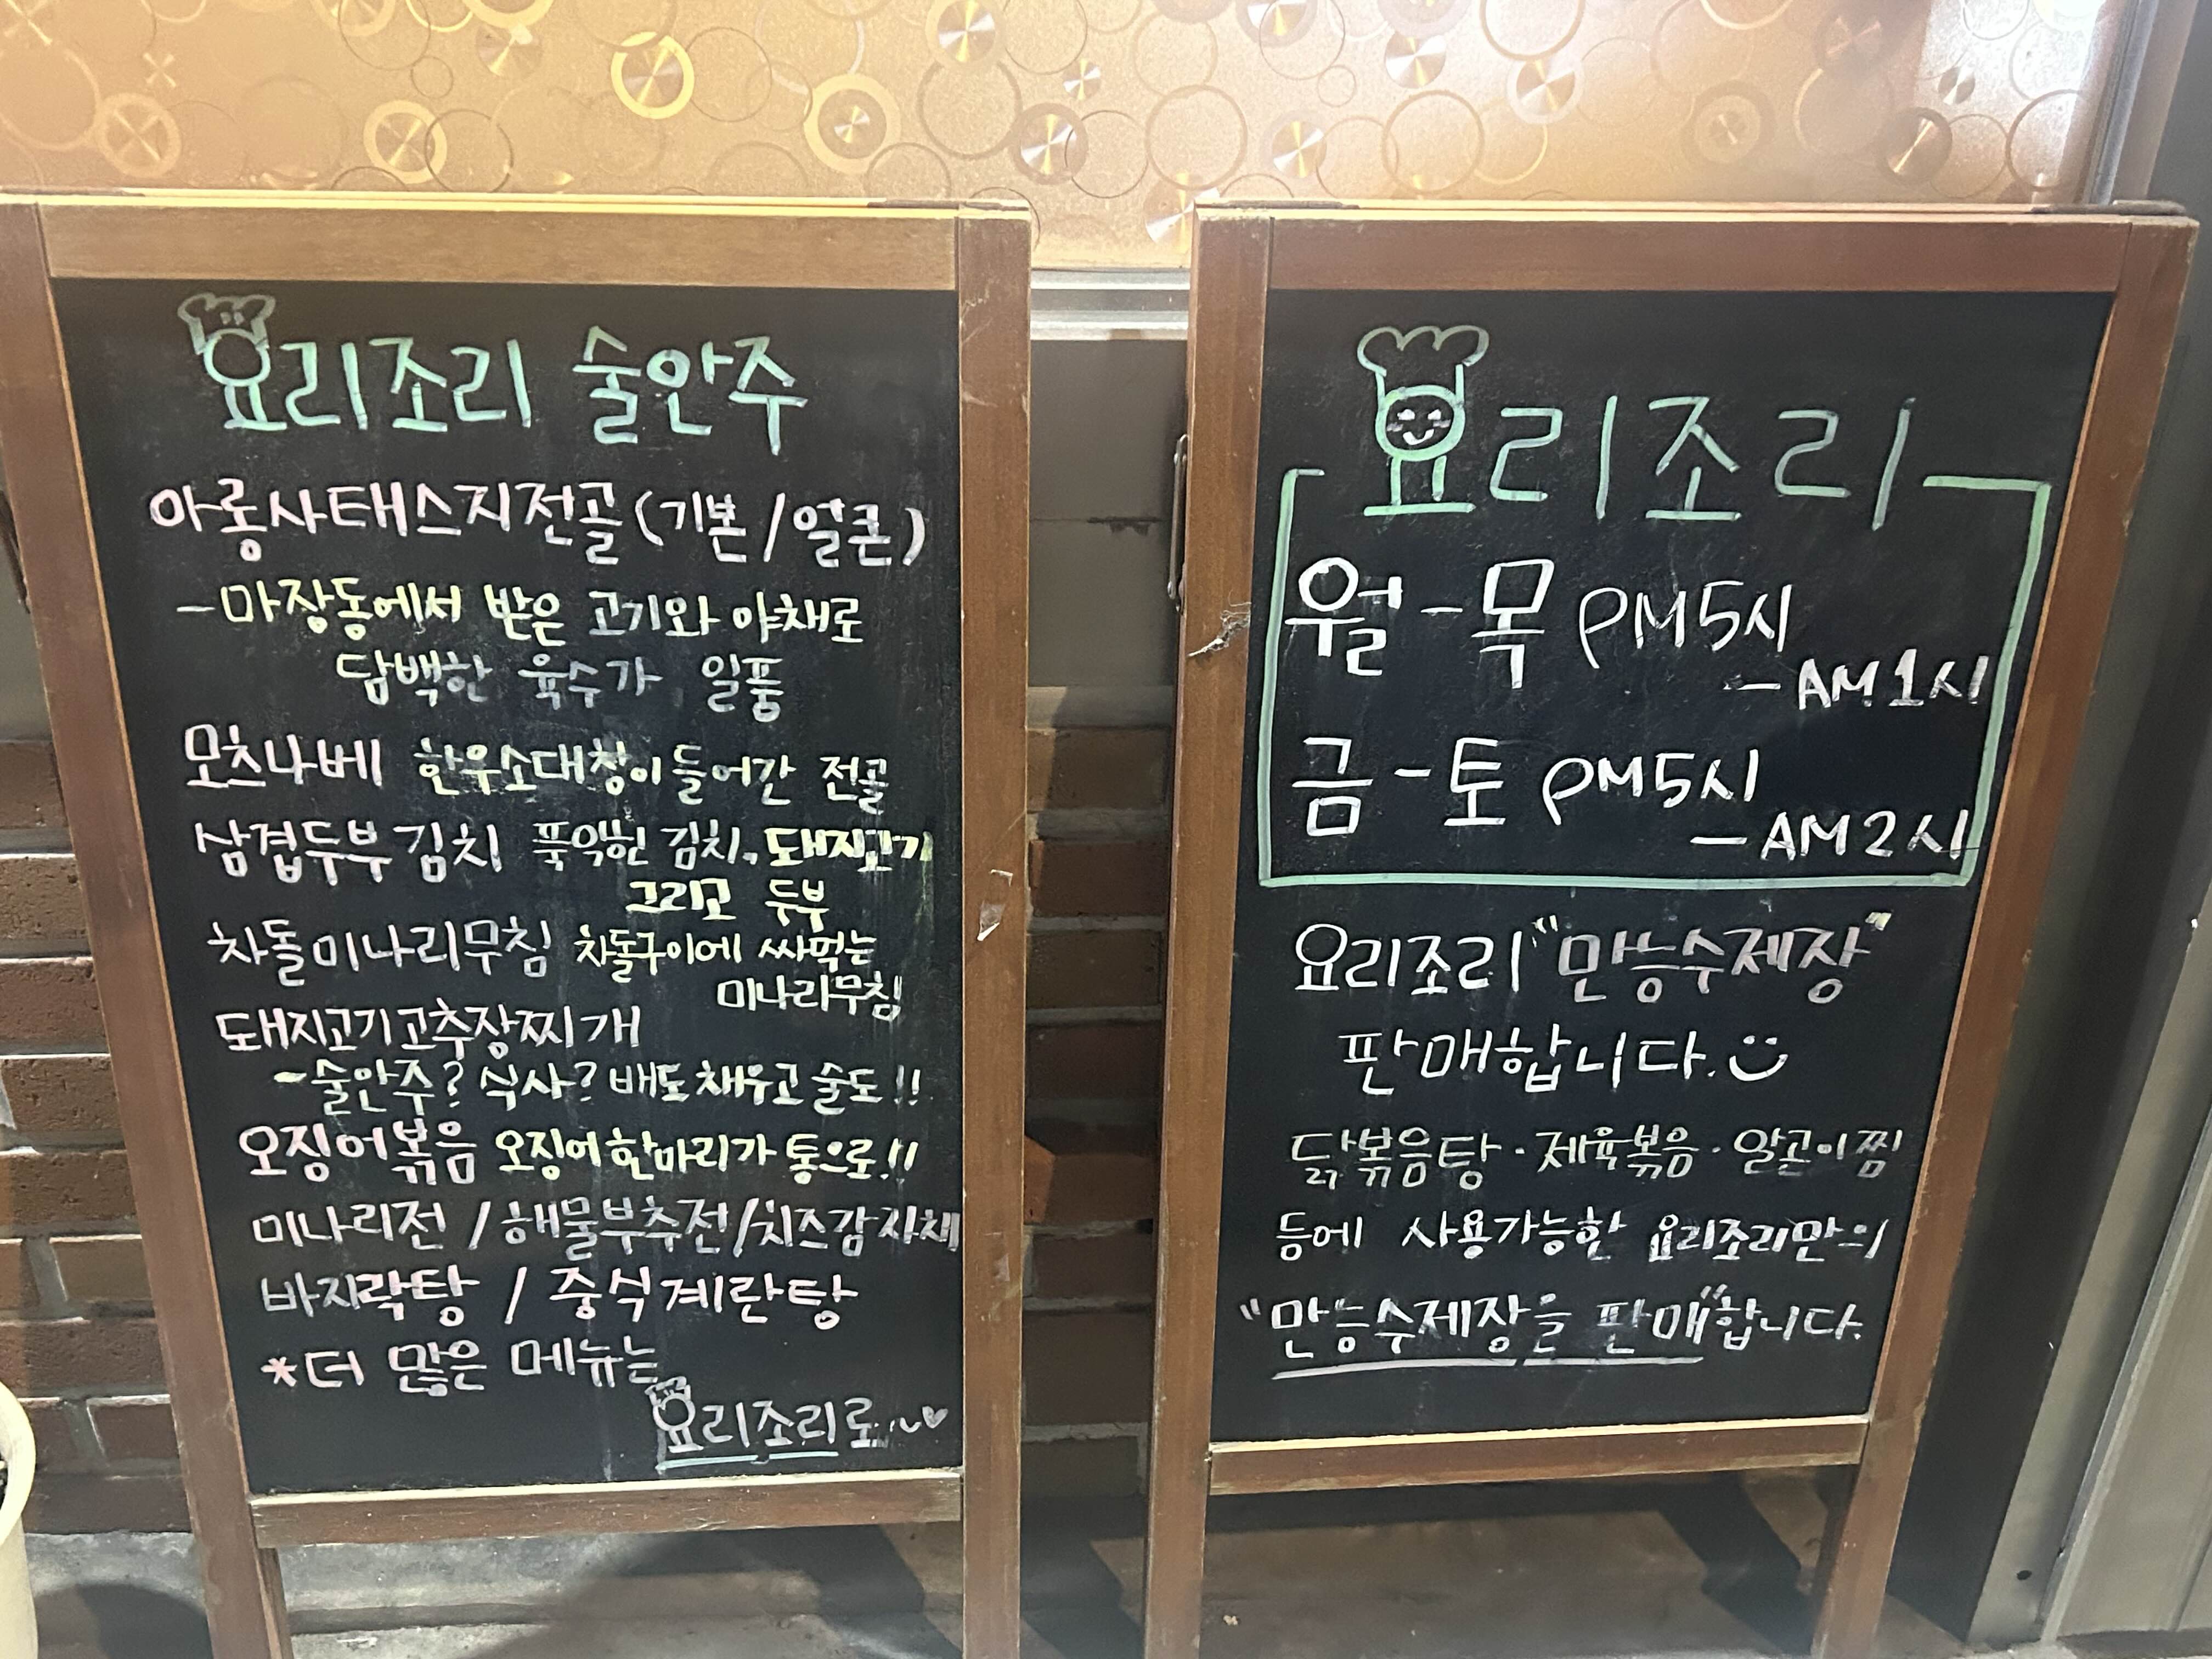 요리조리 술안주
아롱사태스지전골(기본/얼큰)
-마장동에서 받은 고기와 야채로
담백한 육수가 일품
모츠나베 한우소대창이 들어간 전골
삼겹두부김치 푹익힌 김치, 돼지고기
그리고 두부
차돌미나리무침 차돌구이에 싸먹는
미나리무침
돼지고기고추장찌개
-술안주? 식사? 배도 채우고 술도!!
오징어볶음 오징어한마리가 통으로!!
미나리전 / 해물부추전/치즈감자채
바지락탕 / 중식계란탕
*더 많은 메뉴는
요리조리로~♥
요리조리
월-목 PM5시
-AM1시
금-토 PM5시
-AM2시
요리조리 "만능수제장"
판매합니다.
닭볶음탕·제육볶음·알곤이찜
등에 사용가능한 요리조리만의
"만능수제장을 판매"합니다.